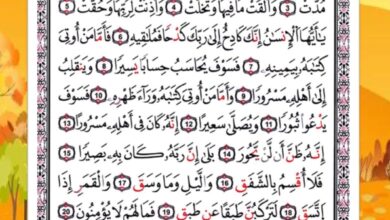 مُدَّتْ ۝٣ وَأَلْقَتْ مَا فِيهَا وَتَخَلَّتْ ۝٤ وَأَذِنَتْ لِرَبِّهَا وَحُقَّتْ ۝٥
يَٰٓأَيُّهَا ٱلْإِنسَٰنُ إِنَّكَ كَادِحٌ إِلَىٰ رَبِّكَ كَدْحًا فَمُلَٰقِيهِ ۝٦ فَأَمَّا مَنْ أُوتِىَ
كِتَٰبَهُۥ بِيَمِينِهِۦ ۝٧ فَسَوْفَ يُحَاسَبُ حِسَابًا يَسِيرًا ۝٨ وَيَنقَلِبُ
إِلَىٰٓ أَهْلِهِۦ مَسْرُورًا ۝٩ وَأَمَّا مَنْ أُوتِىَ كِتَٰبَهُۥ وَرَآءَ ظَهْرِهِۦ ۝١٠ فَسَوْفَ
يَدْعُوا۟ ثُبُورًا ۝١١ وَيَصْلَىٰ سَعِيرًا ۝١٢ إِنَّهُۥ كَانَ فِىٓ أَهْلِهِۦ مَسْرُورًا ۝١٣
إِنَّهُۥ ظَنَّ أَن لَّن يَحُورَ ۝١٤ بَلَىٰٓ إِنَّ رَبَّهُۥ كَانَ بِهِۦ بَصِيرًا ۝١٥
فَلَآ أُقْسِمُ بِٱلشَّفَقِ ۝١٦ وَٱلَّيْلِ وَمَا وَسَقَ ۝١٧ وَٱلْقَمَرِ إِذَا
ٱتَّسَقَ ۝١٨ لَتَرْكَبُنَّ طَبَقًا عَن طَبَقٍ ۝١٩ فَمَا لَهُمْ لَا يُؤْمِنُونَ ۝٢٠